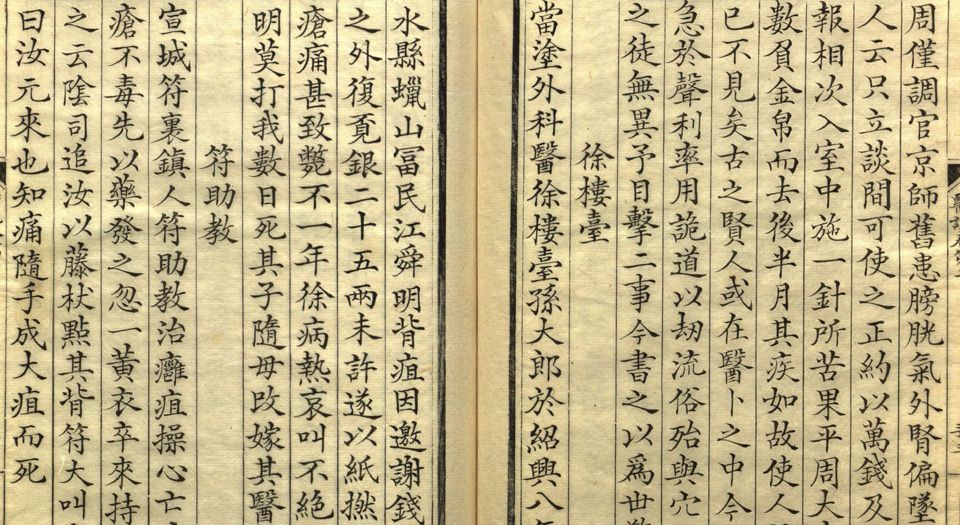 周僅調官京師舊患膀胱氣外腎偏墜
人云只立談間可使之正約以萬錢及
報相次入室中施一針所苦果平周大
數負金帛而去後半月其疾如故使人
已不見矣古之賢人或在醫卜之中今
急於聲利率用詭道以劫流俗殆與穴
之徒無異予目擊二事今書之以為世
徐樓臺
當塗外科醫徐樓臺孫大郎於紹興八
水縣蠟山冨民江舜明背疽因邀謝錢
之外復覔銀二十五兩未許遂以紙撚
瘡痛甚致斃不一年徐病熱哀叫不絕
明莫打我數日死其子隨母改嫁其醫
符助教
宣城符裏鎮人符助教治癰疽操心亡
瘡不毒先以藥發之忽一黃衣卒來持
之云陰司追汝以藤杖點其背符大叫
曰汝元來也知痛隨手成大疽而死